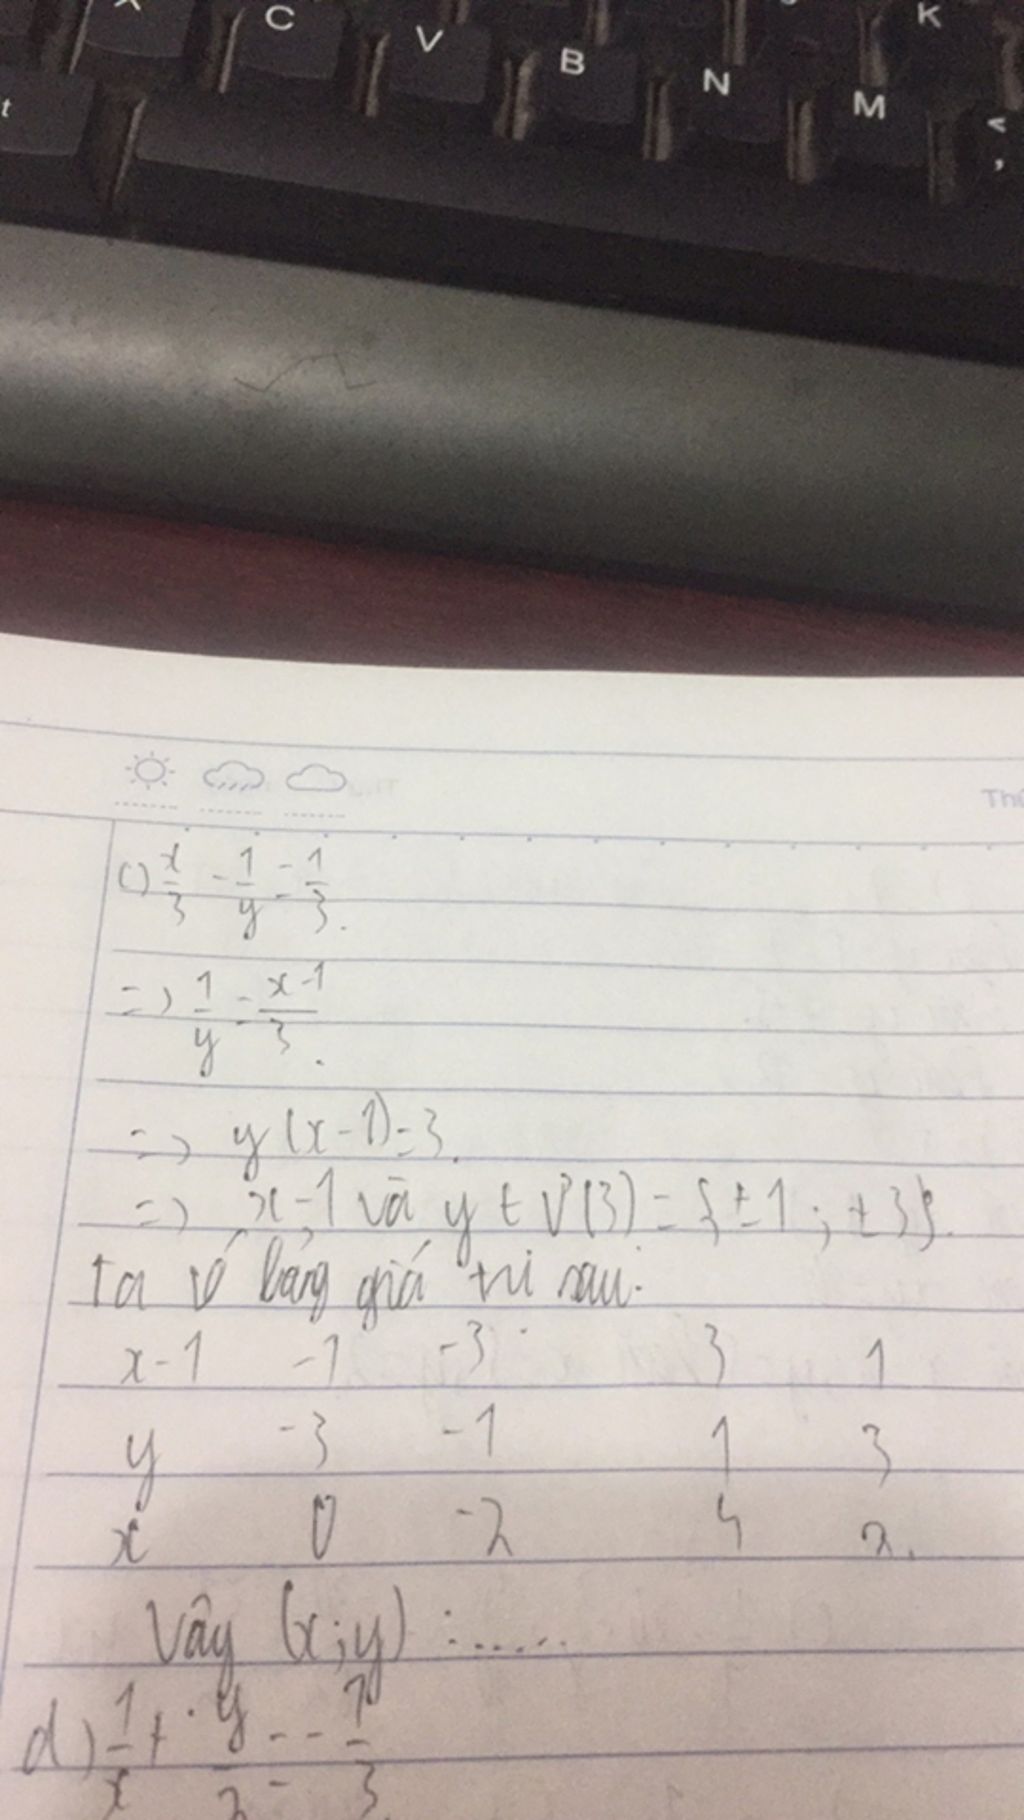 C V B N M K
< ,
c) x/3 - 1/y = 1/3.
=> 1/y = x-1/3.
=> y(x-1)=3.
=> x-1 và y ∈ Ư(3) = {±1; ±3}.
ta có bảng giá trị sau:
x-1 -1 -3 3 1
y -3 -1 1 3
x 0 -2 4 2.
Vậy (x;y) :......
d) 1/x + y/2 = - 1/3